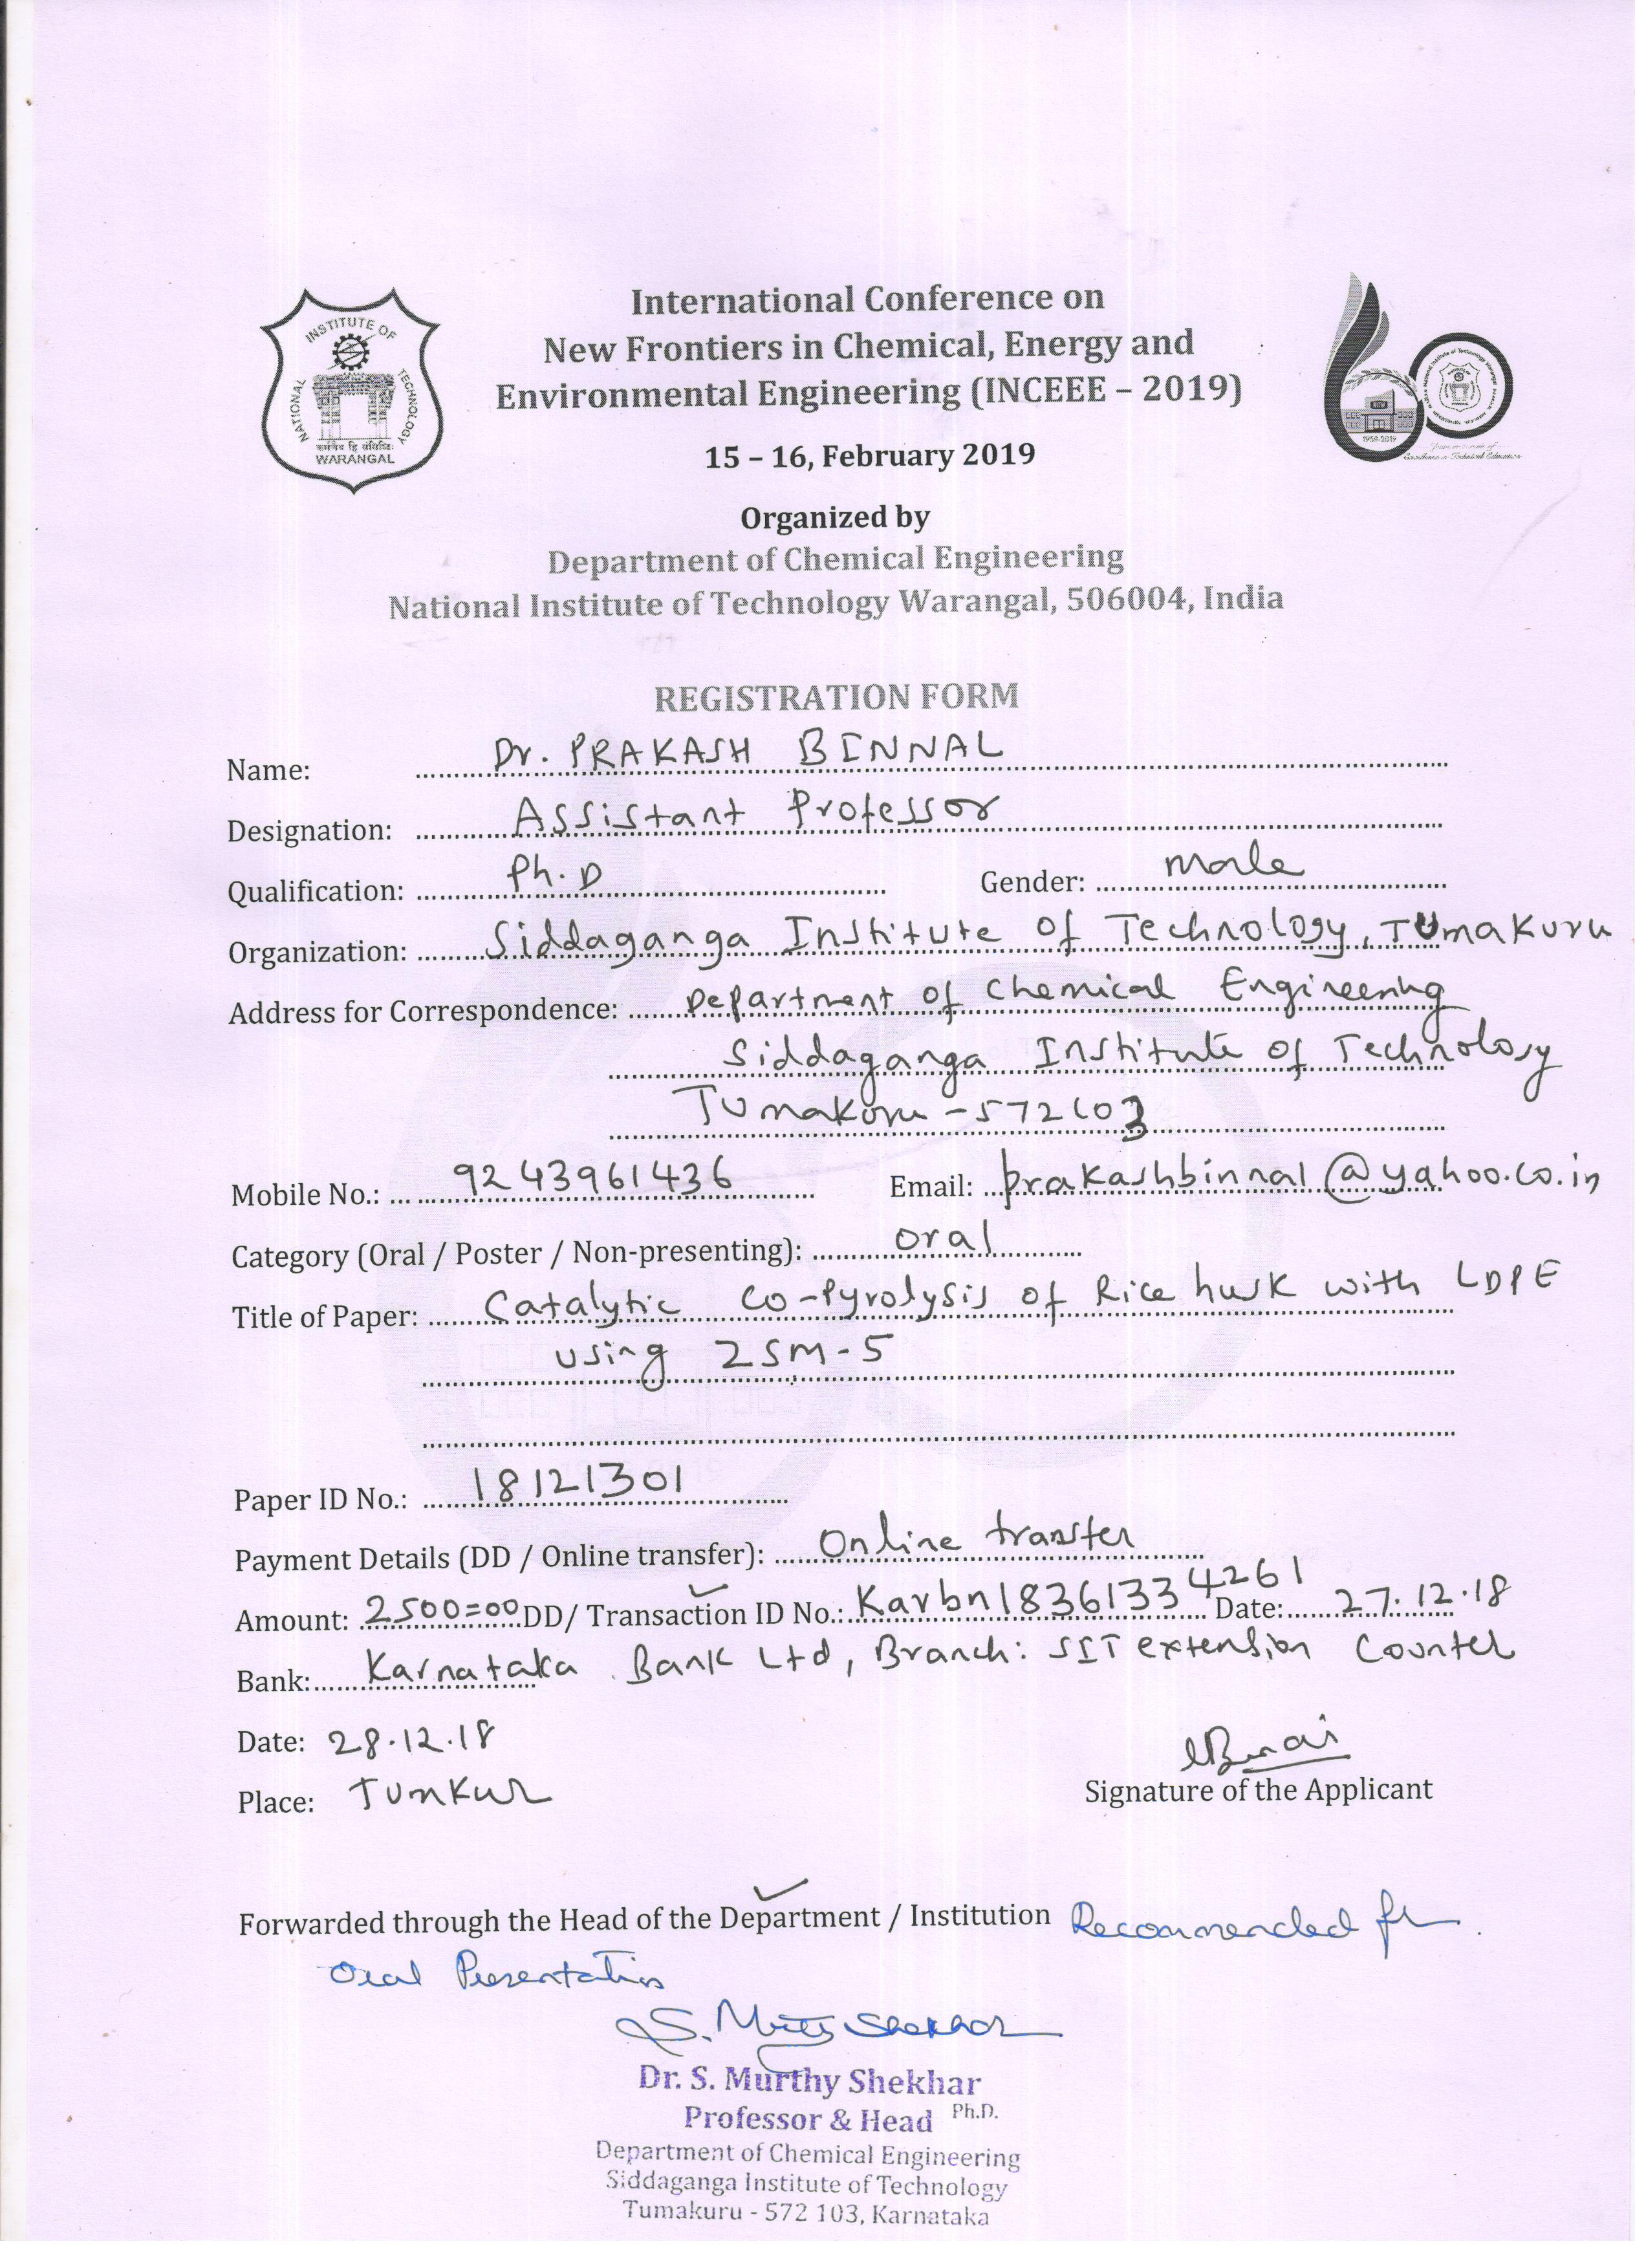 International Conference on
New Frontiers in Chemical, Energy and
Environmental Engineering (INCEEE – 2019)
15 – 16, February 2019
Organized by
Department of Chemical Engineering
National Institute of Technology Warangal, 506004, India
NATIONAL INSTITUTE OF TECHNOLOGY
WARANGAL
1959-2019
REGISTRATION FORM
Name: Dr. PRAKASH BINNAL
Designation: Assistant Professor
Qualification: Ph.D Gender: Male
Organization: Siddaganga Institute of Technology, TUmakuru
Address for Correspondence: Department of Chemical Engineering
Siddaganga Institute of Technology
Tumakuru - 572103
Mobile No.: 9243961436 Email: prakashbinnal@yahoo.co.in
Category (Oral / Poster / Non-presenting): oral
Title of Paper: Catalytic Co-Pyrolysis of Rice husk with LDPE
using ZSM-5
Paper ID No.: 18121301
Payment Details (DD / Online transfer): Online transfer
Amount: 2500=00 DD/ Transaction ID No.: Karbn18361334261 Date: 27.12.18
Bank: Karnataka Bank Ltd, Branch: SIT extension Counter
Date: 28.12.18
Place: Tumkur
Signature of the Applicant
Forwarded through the Head of the Department / Institution Recommended for
Oral Presentation
S. Murthy Shekhar
Dr. S. Murthy Shekhar
Professor & Head Ph.D.
Department of Chemical Engineering
Siddaganga Institute of Technology
Tumakuru - 572 103, Karnataka